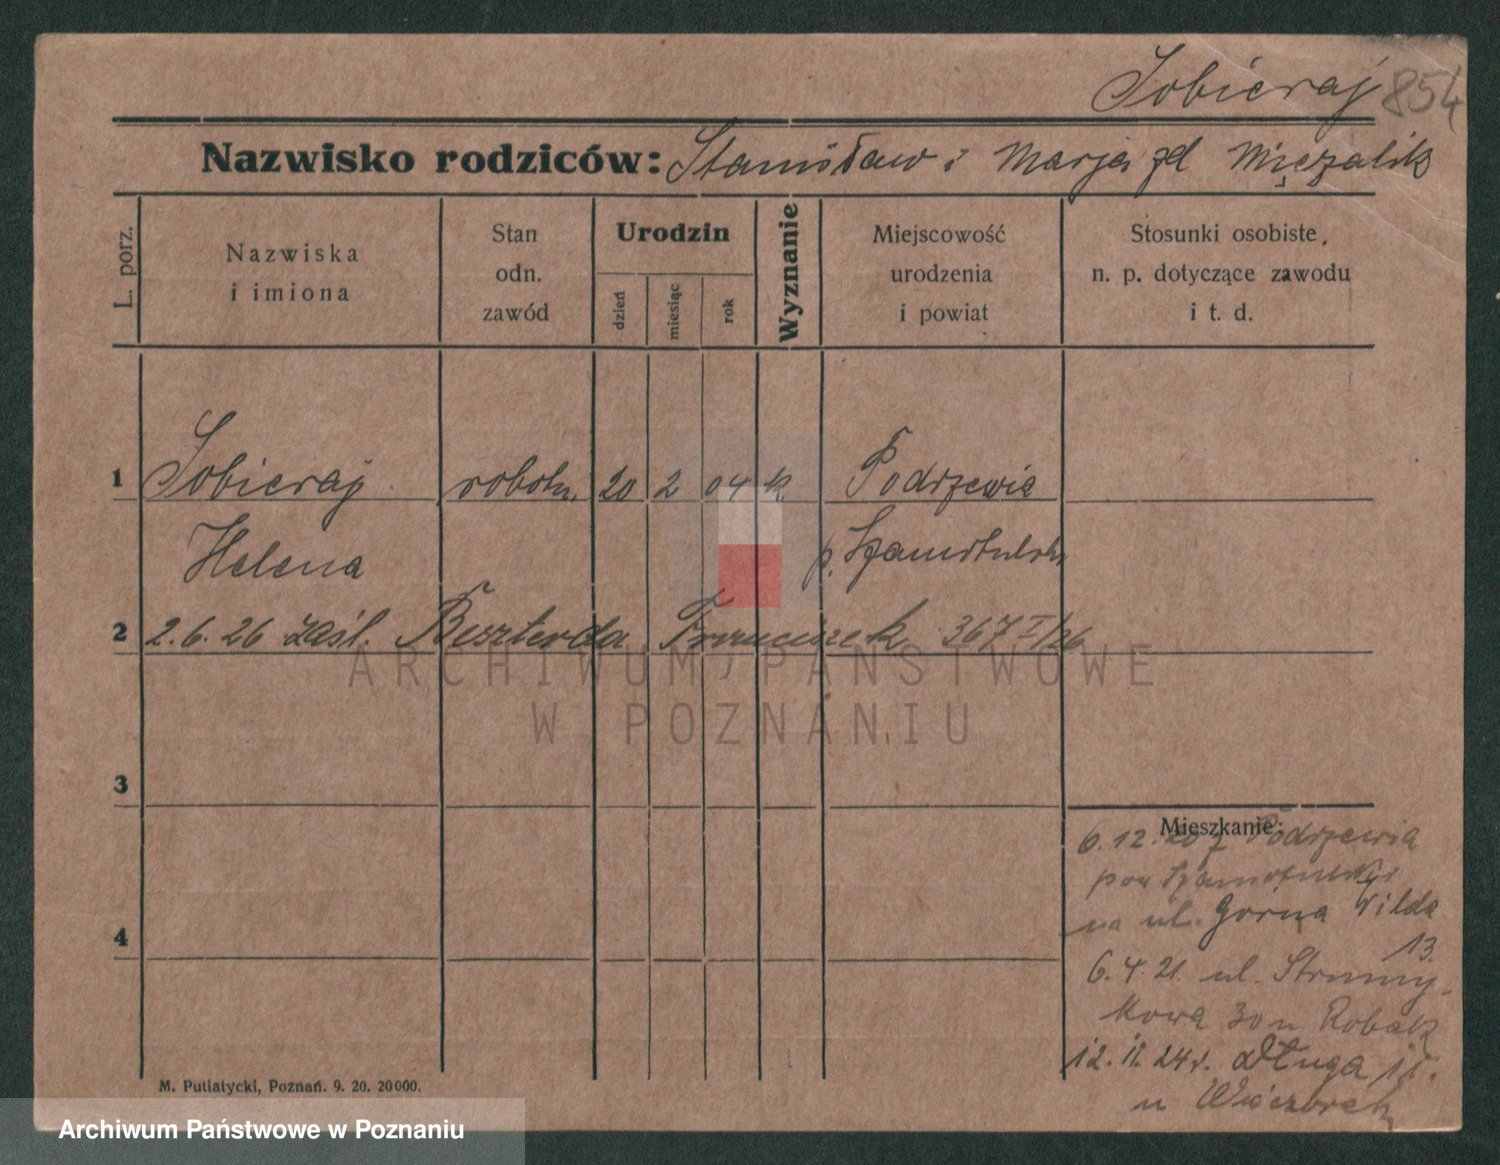 Sobieraj 854
Nazwisko rodziców: Stanisław i Marja zd
L. porz.
Nazwiska
i imiona
Stan
odn.
zawód
Urodzin
dzień
miesiąc
rok
Wyznanie
Miejscowość
urodzenia
i powiat
Stosunki osobiste,
n. p. dotyczące zawodu
i t. d.
1 Sobieraj robotn. 20 2 04 k Podrzewia
Helena p.
2 2.6.26 zaśl. Beszterda Franciszek 367 I/26
ARCHIWUM PAŃSTWOWE
W POZNANIU
3
Mieszkanie:
6.12.20 z Podrzewia
pow
na ul. Górna Wilda
13.
4
6.4.21. ul. Strumy-
kowa 30 u Robak
12. 11. 24 r. Długa 11.
u
M. Putiatycki, Poznań. 9. 20. 20000.
Archiwum Państwowe w Poznaniu